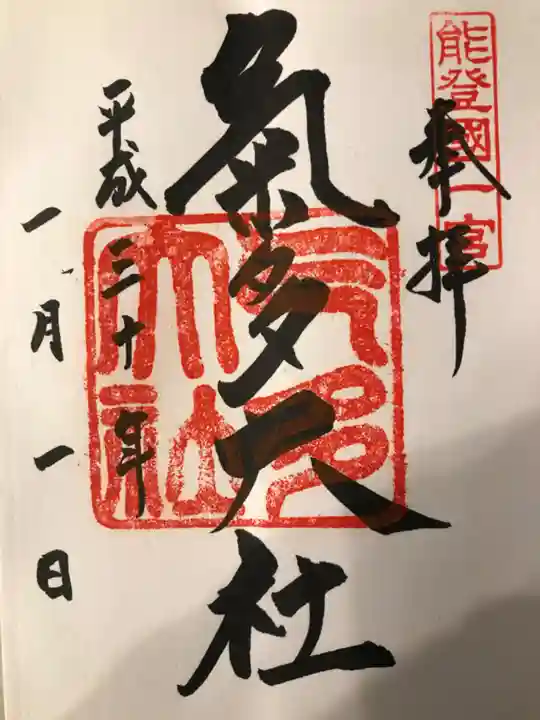 能登國一宮
奉拝
氣多大社
氣多大社
平成三十年
一月一日